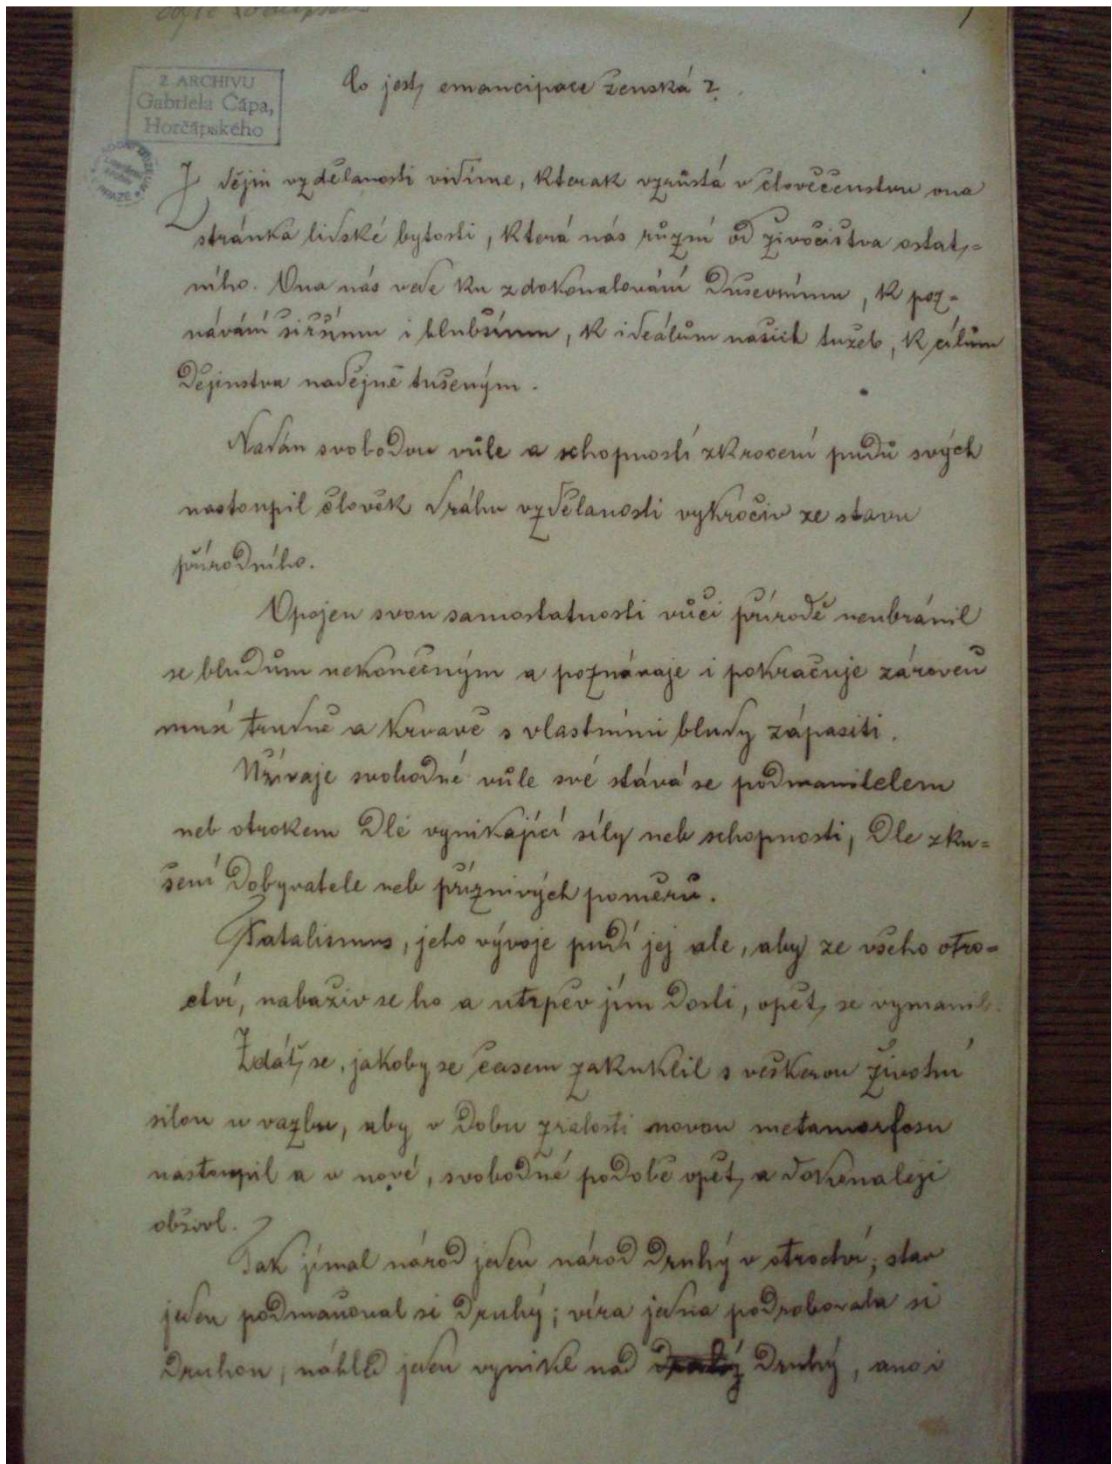 Z ARCHIVU
Gabriela Čápa,
Horčápského
Co jest emancipace ženská?
Z dějin vzdělanosti vidíme, kterak vzrůstá v člověčenstvu ona
stránka lidské bytosti, která nás různí od živočištva ostat-
ního. Ona nás vede ku zdokonalování duševnímu, k poz-
návání širšímu i hlubšímu, k ideálům našich tužeb, k cílům
dějinstva nadějně tušeným.
Nadán svobodou vůle a schopností zkrocení pudů svých
nastoupil člověk dráhu vzdělanosti vykročiv ze stavu
přírodního.
Opojen svou samostatností vůči přírodě neubránil
se bludům nekonečným a poznávaje i pokračuje zároveň
musí trudně a krvavě s vlastními bludy zápasiti.
Užívaje svobodné vůle své stává se podmanitelem
neb otrokem dle vynikající síly neb schopnosti, dle zku-
šení dobyvatele neb příznivých poměrů.
Fatalismus, jeho vývoje pudí jej ale, aby ze všeho otro-
ctví, nabaživ se ho a utrpěv jím dosti, opět se vymanil.
Zdáť se, jakoby se časem zakuklil s veškerou životní
silou u vazbu, aby v dobu zralosti novou metamorfosu
nastoupil a v nové, svobodné podobě opět a dokonaleji
obživl.
Tak jímal národ jeden národ druhý v otroctví; stav
jeden podmaňoval si druhý; víra jedna podrobovala si
druhou; náhled jeden vynikl nad druhý, ano i